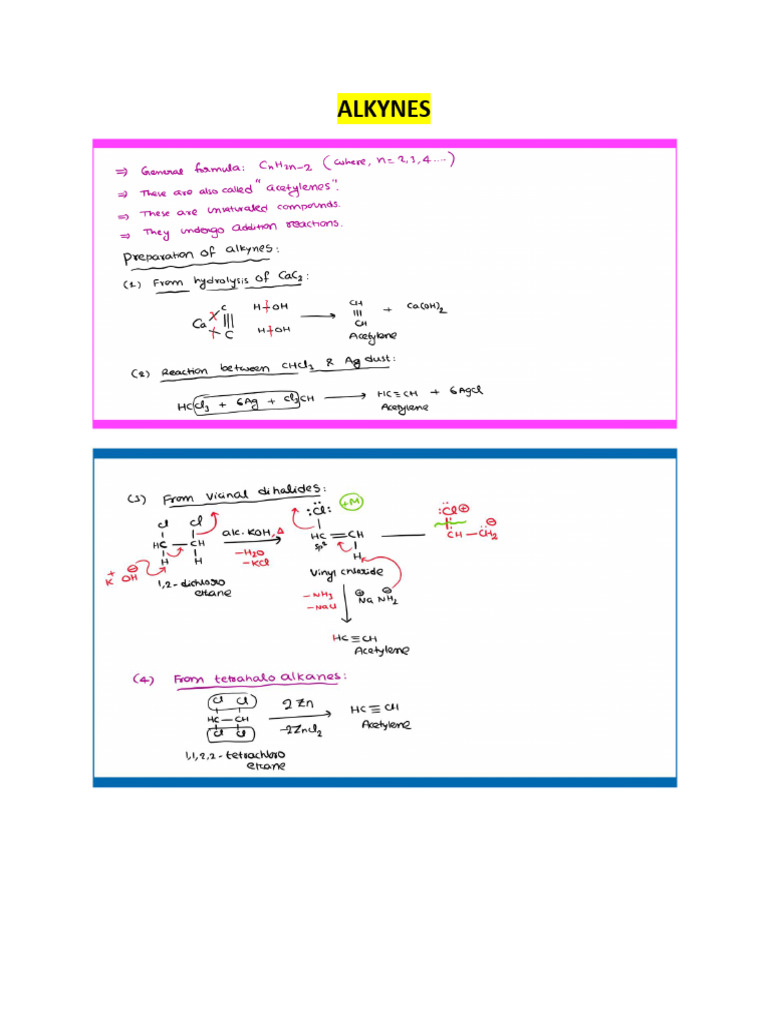 ALKYNES
⇒ General formula: CnH2n-2 (where, n = 2,3,4....)
⇒ These are also called "acetylenes".
⇒ These are unsaturated compounds.
⇒ They undergo addition reactions.
Preparation of alkynes:
(1) From hydrolysis of CaC2:
Ca C ||| C H-OH H-OH → CH ||| CH + Ca(OH)2
Acetylene
(2) Reaction between CHCl3 & Ag dust:
HCCl3 + 6Ag + Cl3CH → HC≡CH + 6AgCl
Acetylene
(3) From vicinal dihalides:
Cl Cl :Cl: +M :Cl⊕
HC - CH alc. KOH, Δ HC = CH CH - CH2 ⊖
-H2O sp2
-KCl
H H H
K+ OH⊖
1,2-dichloro ethane
Vinyl chloride
-NH3
-NaCl
⊕Na ⊖NH2
HC≡CH
Acetylene
(4) From tetrahalo alkanes:
Cl Cl
HC - CH 2Zn → HC≡CH
Cl Cl -2ZnCl2 Acetylene
1,1,2,2-tetrachloro
ethane